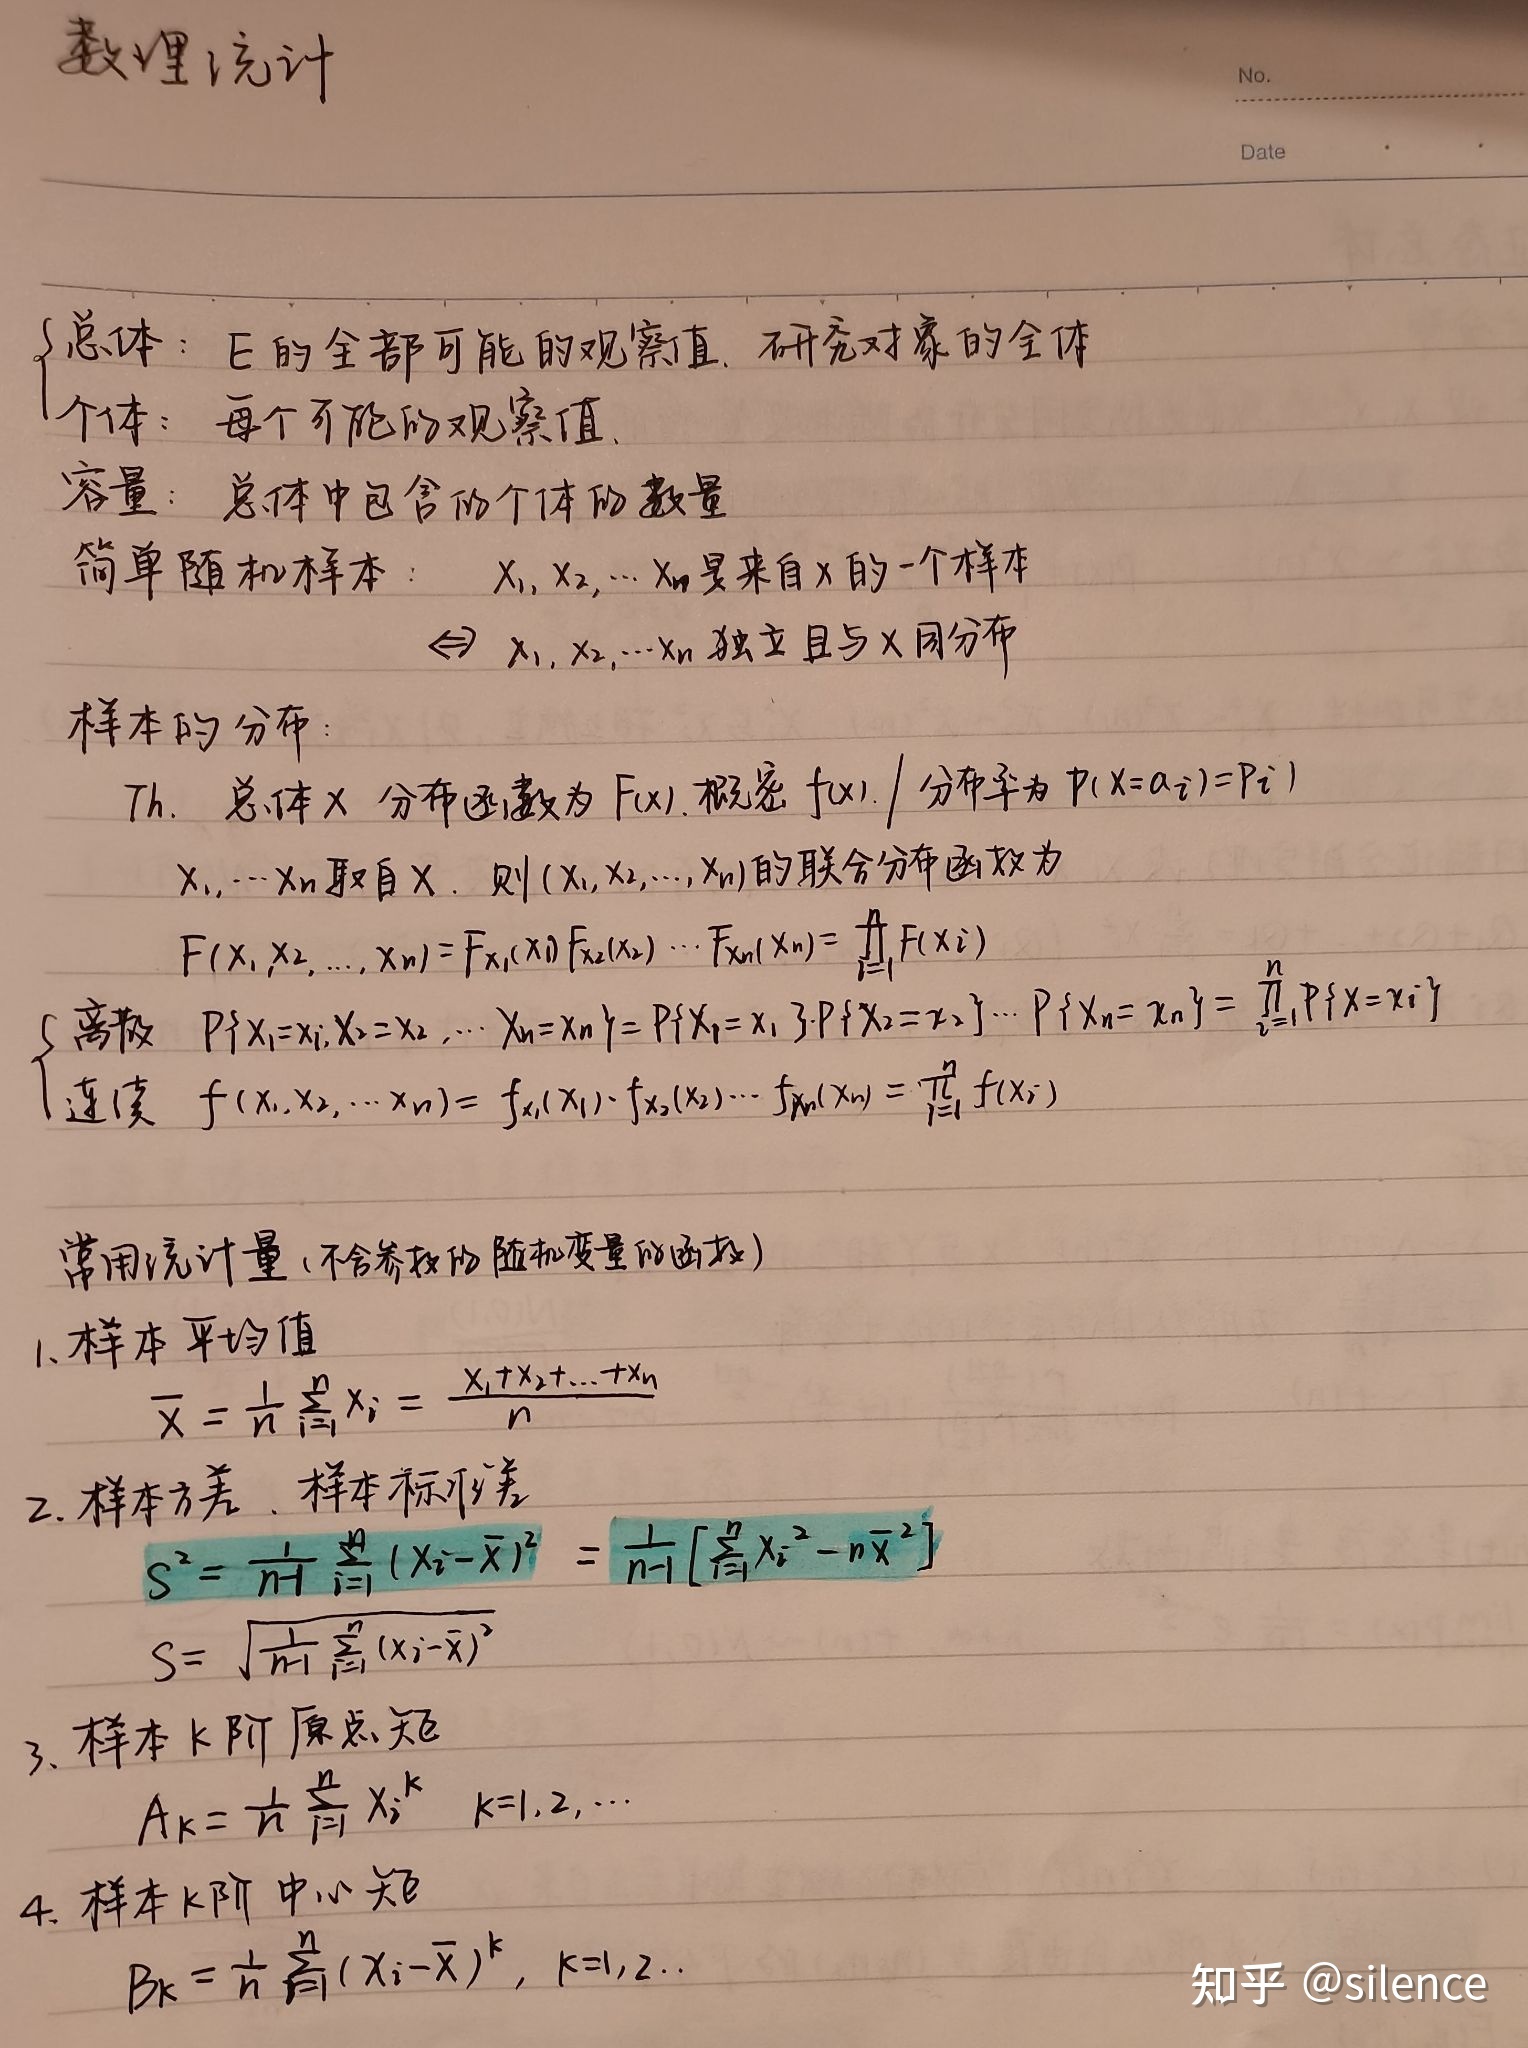 数理统计
No.
Date
总体: E的全部可能的观察值. 研究对象的全体
个体: 每个可能的观察值.
容量: 总体中包含的个体的数量
简单随机样本: X₁, X₂, … Xₙ是来自X的一个样本
⇔ X₁, X₂, … Xₙ 独立且与X同分布
样本的分布:
Th. 总体X 分布函数为 F(x). 概密 f(x). / 分布率为 P(X=aᵢ)=Pᵢ)
X₁, … Xₙ取自X. 则(X₁, X₂, …, Xₙ)的联合分布函数为
F(X₁, X₂, …, Xₙ) = F_{X₁}(X₁) F_{X₂}(X₂) … F_{Xₙ}(Xₙ) = ∏_{i=1}^{n} F(Xᵢ)
离散 P{X₁=xᵢ, X₂=x₂, … Xₙ=xₙ} = P{X₁=x₁}·P{X₂=x₂} … P{Xₙ=xₙ} = ∏_{i=1}^{n} P{X=xᵢ}
连续 f(X₁, X₂, … Xₙ) = f_{X₁}(X₁)·f_{X₂}(X₂) … f_{Xₙ}(Xₙ) = ∏_{i=1}^{n} f(Xᵢ)
常用统计量(不含参数的随机变量的函数)
1. 样本平均值
X̄ = 1/n ∑_{i=1}^{n} Xᵢ = (X₁+X₂+…+Xₙ)/n
2. 样本方差. 样本标准差
S² = 1/(n-1) ∑_{i=1}^{n} (Xᵢ-X̄)² = 1/(n-1) [∑_{i=1}^{n} Xᵢ² - nX̄²]
S = √(1/(n-1) ∑_{i=1}^{n} (Xᵢ-X̄)²)
3. 样本K阶原点矩
A_K = 1/n ∑_{i=1}^{n} Xᵢᵏ K=1,2,…
4. 样本K阶中心矩
B_K = 1/n ∑_{i=1}^{n} (Xᵢ-X̄)ᵏ, K=1,2..
知乎 @silence